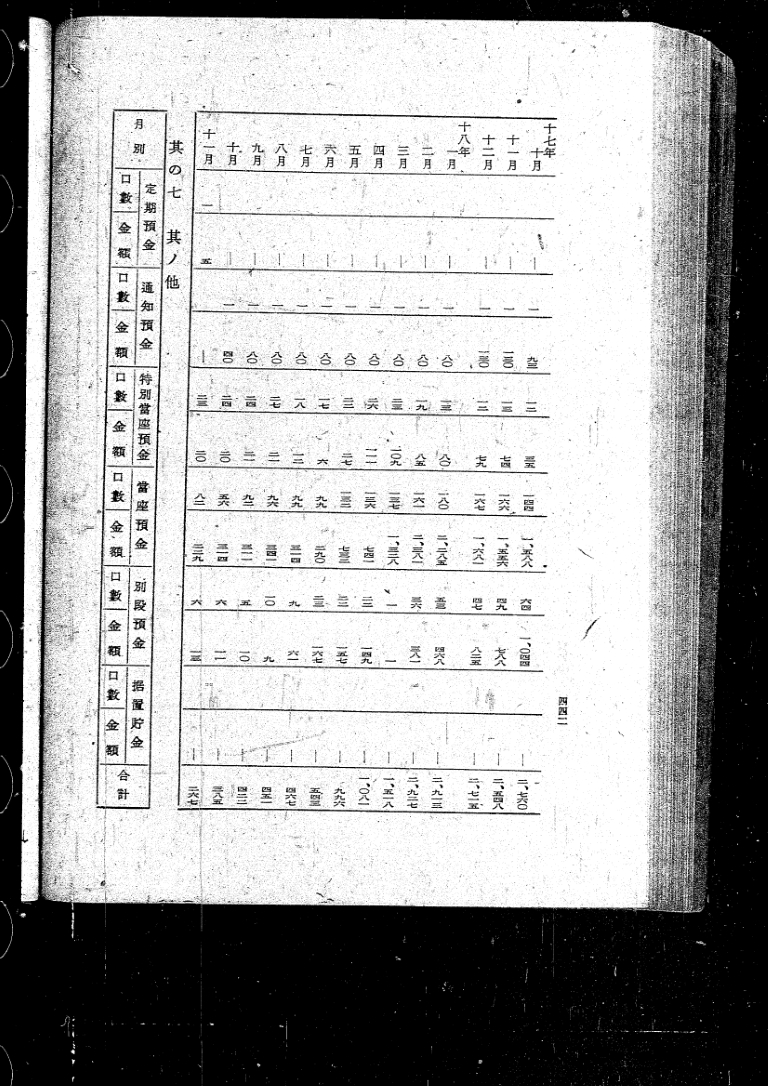 四四二
十七年
十月 — 一 九三 一二 三五 一四四 一、五八八 六四 一、〇四四 — 二、七六〇
十一月 — 一 一三〇 一三 七四 一六六 一、五五六 四九 七八八 — 二、五四八
十二月 — 一 一三〇 一二 七九 一六七 一、六八一 四七 八二五 — 二、七一五
十八年
一月 — 一 八〇 一三 八〇 一八〇 二、二八五 五三 四六八 — 二、九一三
二月 — 一 八〇 一九 八五 一六一 二、三八一 三六 三八一 — 二、九二七
三月 — 一 八〇 二三 一〇九 一三七 一、三二八 一 一 — 一、五一八
四月 — 一 八〇 二六 一一一 一三六 七四一 二二 一四九 — 一、〇八一
五月 — 一 八〇 二二 二七 一三二 七三二 二二 一五七 — 九九六
六月 — 一 八〇 一七 六 九九 二九〇 二三 一六七 — 五四三
七月 — 一 八〇 一八 一二 九九 三一四 九 六一 — 四六七
八月 — 一 八〇 二七 二一 九六 三四一 一〇 九 — 四五一
九月 — 一 八〇 二四 二一 九二 三一一 五 一〇 — 四二二
十月 — 一 四〇 二四 二〇 五六 三一四 六 一一 — 三八五
十一月 一 五 — 二三 二〇 八二 二二九 六 一三 — 二六七
其の七 其ノ他
月別 定期預金 通知預金 特別當座預金 當座預金 別段預金 据置貯金 合計
口數 金額 口數 金額 口數 金額 口數 金額 口數 金額 口數 金額